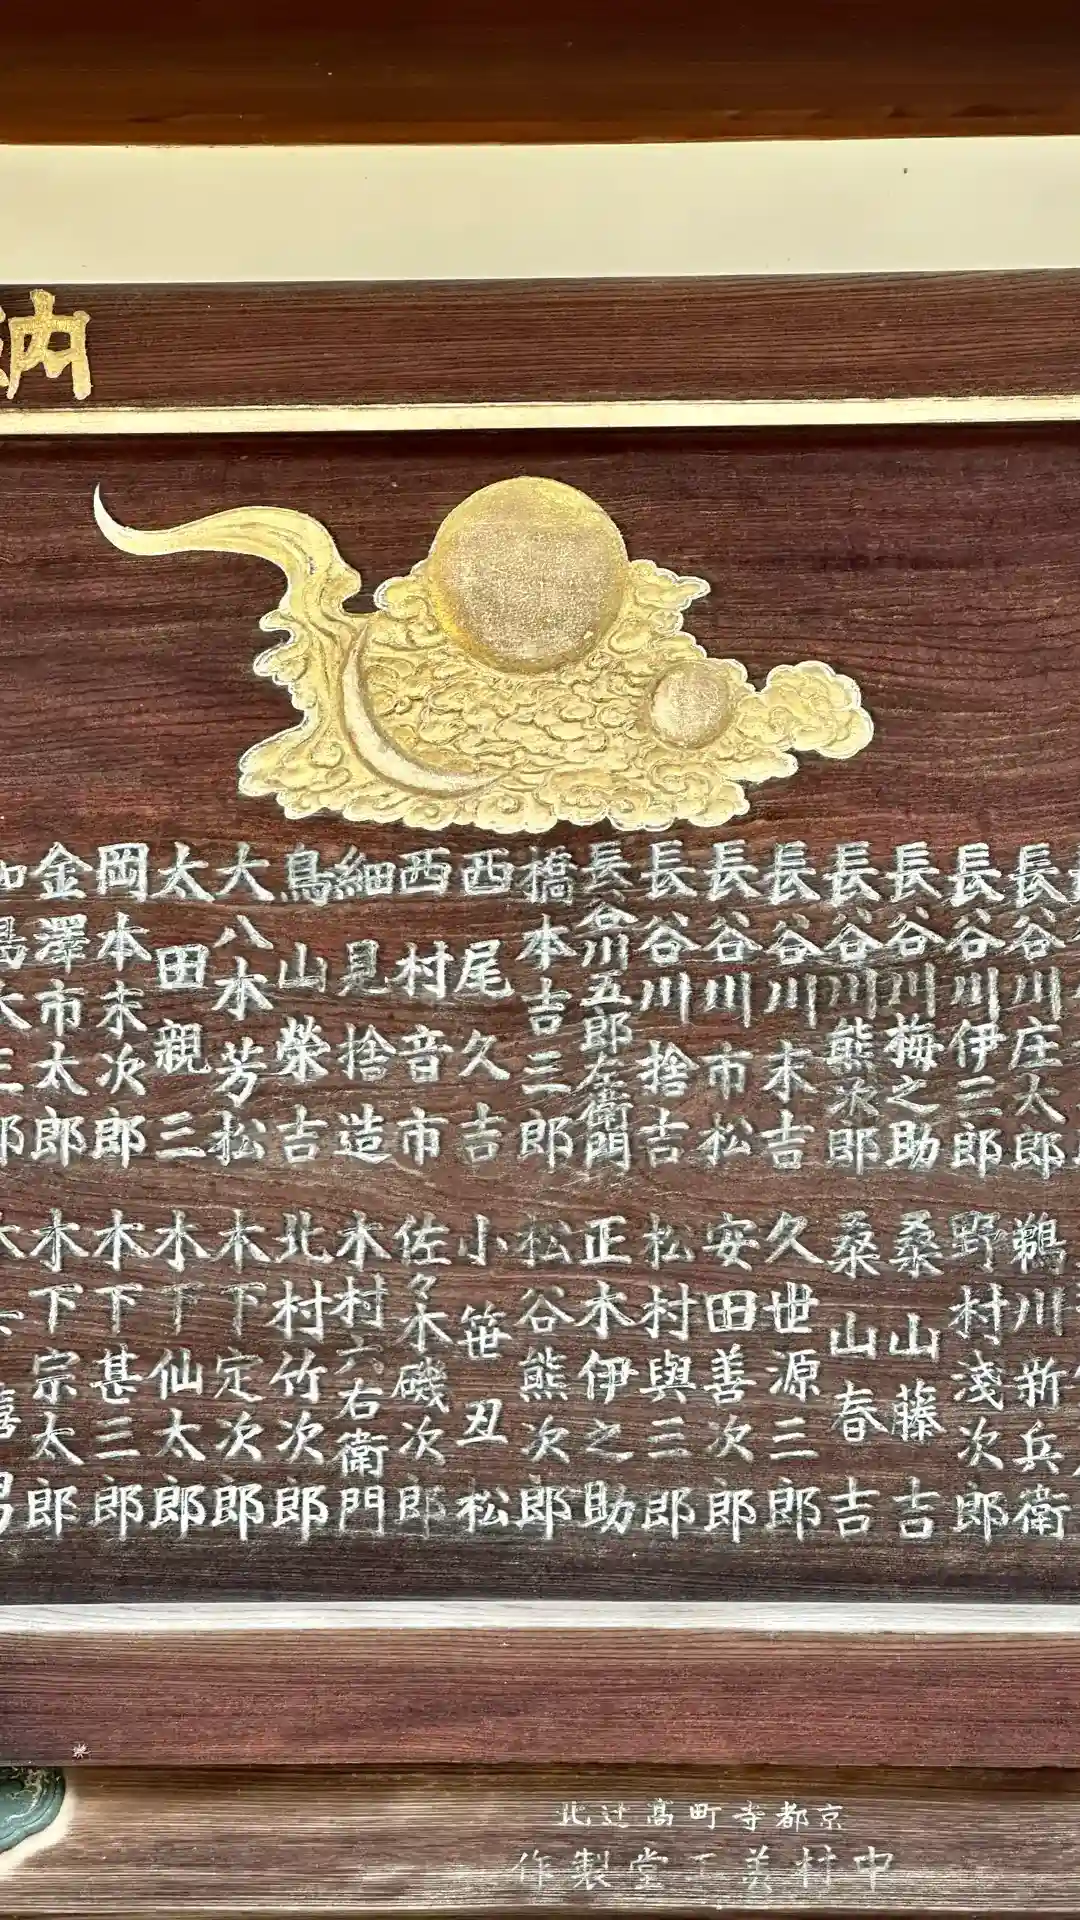 納
長谷川庄太郎
長谷川伊三郎
長谷川梅之助
長谷川熊次郎
長谷川末吉
長谷川市松
長谷川捨吉
長谷川五郎左衛門
橋本吉三郎
西尾久吉
西村音市
細見捨造
鳥山榮吉
大八木芳松
太田親三
岡本末次郎
金澤市太郎
鵜川新兵衛
野村淺次郎
桑山藤吉
桑山春吉
久世源三郎
安田善次郎
松村與三郎
正木伊之助
松谷熊次郎
小笹丑松
佐々木磯次郎
木村六右衛門
北村竹次郎
木下定次郎
木下仙太郎
木下甚三郎
木下宗太郎
京都寺町高辻北
中村美工堂製作